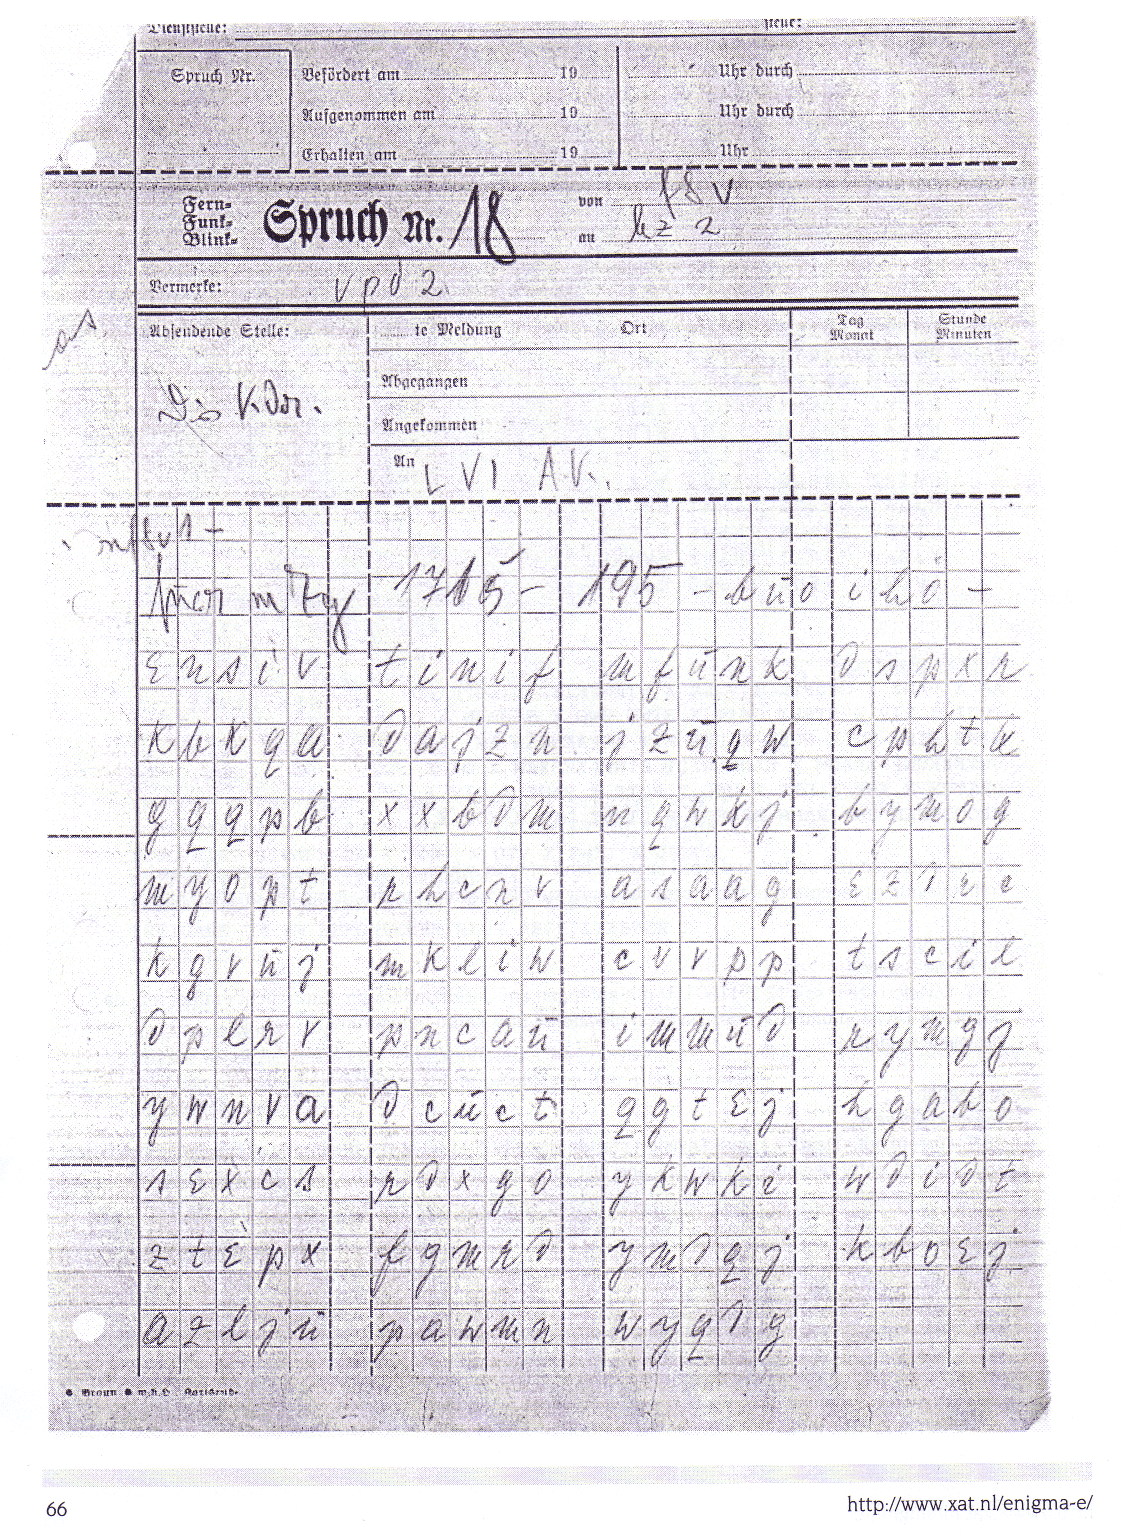 Dienststelle: stelle:
Spruch Nr. Befördert am 19 Uhr durch
Aufgenommen am 19 Uhr durch
Erhalten am 19 Uhr
Fern=
Funk=
Blink=
Spruch Nr. 18
von f8v
an hz 2
Vermerke: vpd 2
Absendende Stelle: te Meldung Ort Tag Monat Stunde Minuten
Abgegangen
Angekommen
An LVI A.K.
1715 - 195 - büo ihö -
ensiv tinif mfünk dspxr
kbkqa dajzn jzüqw cphtx
gqqpb xxbdm nqwkj bymog
myopt rhcnv asaag ezdre
kgvüj mkliw cvvpp tscil
dplrv pncaü immüd rymgj
ywnva dcüct qgtej hgabo
sexcs rdxgo ykwki wdidt
ztepx fgmrd ymdqj kboej
azljü pawmn wyqdg
66 http://www.xat.nl/enigma-e/